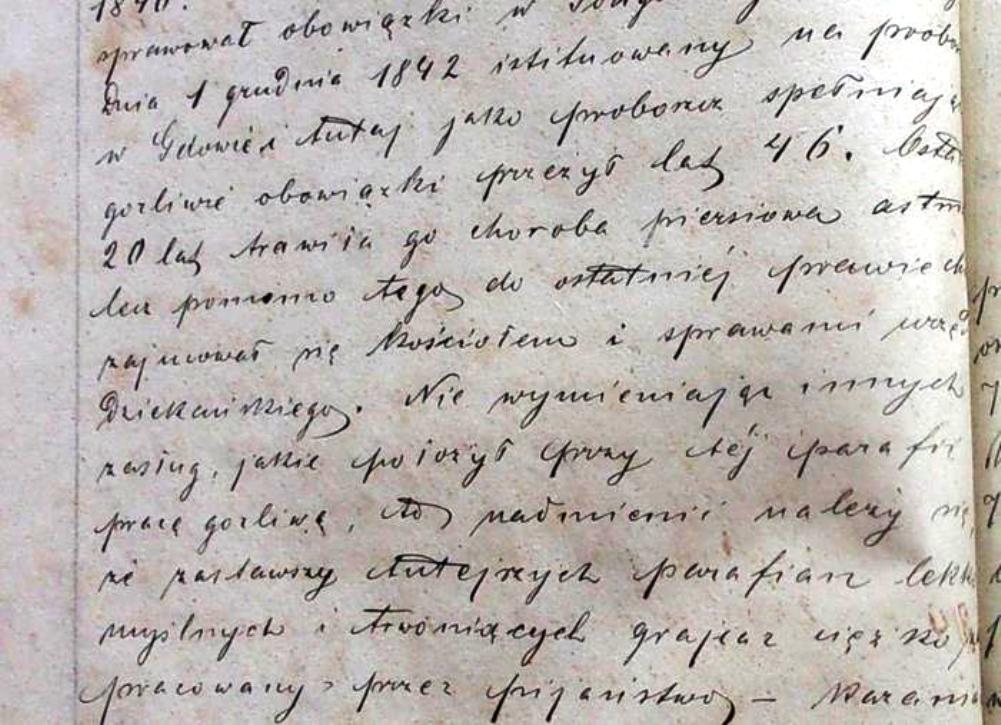 1840.
sprawował obowiązki w
Dnia 1 grudnia 1842 istituowany na probo
w Gdowie i tutaj jako proboszcz spełniają
gorliwie obowiązki przeżył lat 46. Osta
20 lat trawiła go choroba piersiowa astm
lecz pomimo tego do ostatniéj prawie ch
zajmował się kościołem i sprawami urzę
Dziekańskiego. Nie wymieniając innych
zasług, jakie położył przy téj parafii
pracę gorliwą, to nadmienić należy się
że zastawszy tutejszych parafian lekk
myślnych i trwoniących grajcar ciężko
pracowany przez pijaństwo – Kazani